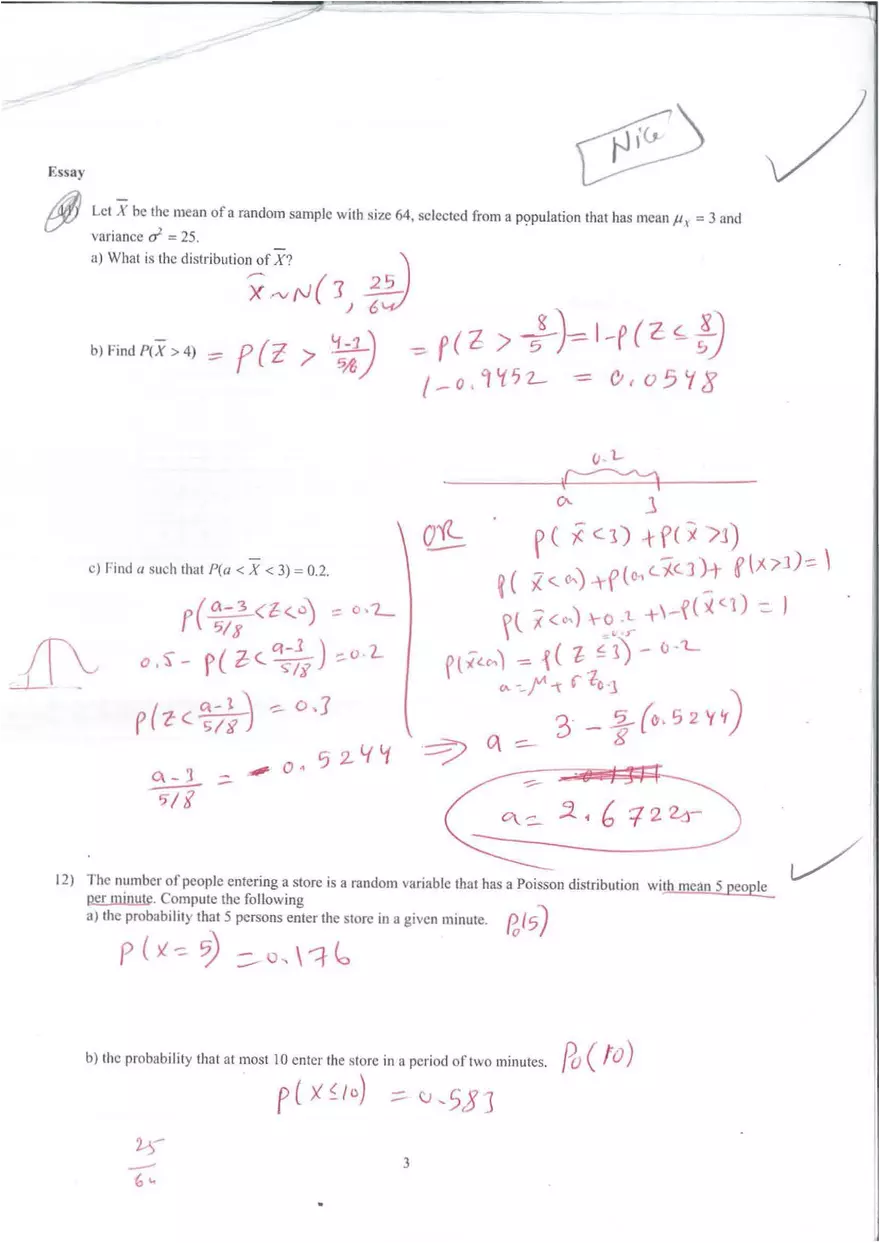 Nice
Essay
11) Let X̅ be the mean of a random sample with size 64, selected from a population that has mean μₓ = 3 and
variance σ² = 25.
a) What is the distribution of X̅?
X̅ ~ N(3, 25/64)
b) Find P(X̅ > 4) = P(Z > (4-3)/(5/8)) = P(Z > 8/5) = 1-P(Z ≤ 8/5)
1-0.9452 = 0.0548
0.2
a 3
c) Find a such that P(a < X̅ < 3) = 0.2.
P((a-3)/(5/8) < Z < 0) = 0.2
0.5 - P(Z < (a-3)/(5/8)) = 0.2
P(Z < (a-3)/(5/8)) = 0.3
(a-3)/(5/8) = -0.5244 ⇒ a = 3 - 5/8 (0.5244)
OR
P(X̅ < 3) + P(X̅ > 3)
P(X̅ < a) + P(a < X̅ < 3) + P(X > 3) = 1
P(X̅ < a) + 0.2 + 1 - P(X̅ < 3) = 1
= 0.5
P(X̅ < a) = P(Z ≤ 3) - 0.2
a = μ + σ Z0.3
=
a = 2.67225
12) The number of people entering a store is a random variable that has a Poisson distribution with mean 5 people
per minute. Compute the following
a) the probability that 5 persons enter the store in a given minute. Po(5)
P(X = 5) = 0.176
b) the probability that at most 10 enter the store in a period of two minutes. Po(10)
P(X ≤ 10) = 0.583
25/64
3